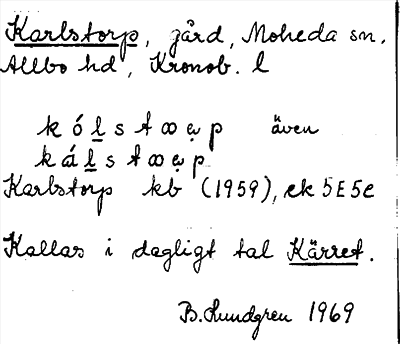 Karlstorp, gård, Moheda sn.
Allbo hd, Kronob. l
k ó l̲ s t œ ạ p även
k á l̲ s t œ ạ p
Karlstorp kb (1959), ek 5E5e
Kallas i dagligt tal Kärret.
B. Lundgren 1969